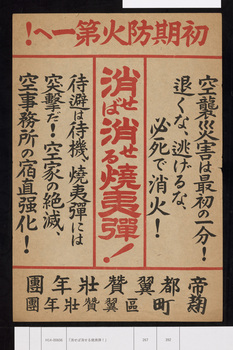 初期防火第一へ！
空襲災害は最初の一分！
退くな、逃げるな、
必死で消火！
消せば消せる燒夷彈！
待避は待機、燒夷彈には
突撃だ！空家の絶滅、
空事務所の宿直强化！
帝都翼贊壯年團
麴町區翼贊壯年團